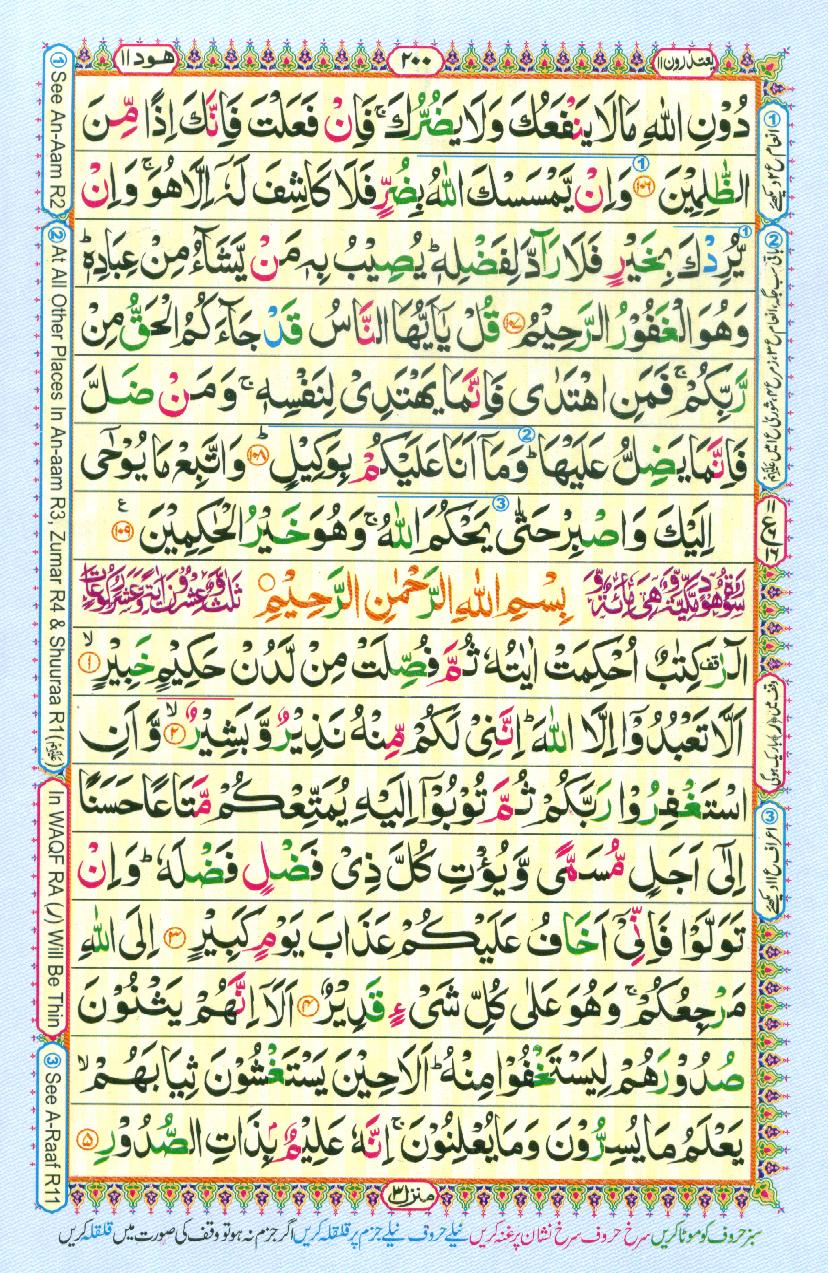 يعتذرون ۱۱
۲۰۰
هود ۱۱
دُوْنِ اللّٰهِ مَا لَا يَنْفَعُكَ وَلَا يَضُرُّكَ ۚ فَاِنْ فَعَلْتَ فَاِنَّكَ اِذًا مِّنَ
الظّٰلِمِيْنَ ﴿۱۰۶﴾ وَاِنْ يَّمْسَسْكَ اللّٰهُ بِضُرٍّ فَلَا كَاشِفَ لَهٗۤ اِلَّا هُوَ ۚ وَاِنْ
يُّرِدْكَ بِخَيْرٍ فَلَا رَآدَّ لِفَضْلِهٖ ؕ يُصِيْبُ بِهٖ مَنْ يَّشَآءُ مِنْ عِبَادِهٖ ؕ
وَهُوَ الْغَفُوْرُ الرَّحِيْمُ ﴿۱۰۷﴾ قُلْ يٰۤاَيُّهَا النَّاسُ قَدْ جَآءَكُمُ الْحَقُّ مِنْ
رَّبِّكُمْ ۚ فَمَنِ اهْتَدٰى فَاِنَّمَا يَهْتَدِىْ لِنَفْسِهٖ ۚ وَمَنْ ضَلَّ
فَاِنَّمَا يَضِلُّ عَلَيْهَا ؕ وَمَاۤ اَنَا عَلَيْكُمْ بِوَكِيْلٍ ؕ ﴿۱۰۸﴾ وَاتَّبِعْ مَا يُوْحٰۤى
اِلَيْكَ وَاصْبِرْ حَتّٰى يَحْكُمَ اللّٰهُ ۚ وَهُوَ خَيْرُ الْحٰكِمِيْنَ ﴿۱۰۹﴾ ع
سُوْرَةُ هُوْدٍ مَّكِّيَّةٌ وَّهِىَ مِائَةٌ وَّ بِسْمِ اللّٰهِ الرَّحْمٰنِ الرَّحِيْمِ ثَلٰثٌ وَّعِشْرُوْنَ اٰيَةً وَّعَشْرُ رُكُوْعَاتٍ
الٓرٰ ۟ كِتٰبٌ اُحْكِمَتْ اٰيٰتُهٗ ثُمَّ فُصِّلَتْ مِنْ لَّدُنْ حَكِيْمٍ خَبِيْرٍ ۙ ﴿۱﴾
اَلَّا تَعْبُدُوْۤا اِلَّا اللّٰهَ ؕ اِنَّنِىْ لَكُمْ مِّنْهُ نَذِيْرٌ وَّبَشِيْرٌ ۙ ﴿۲﴾ وَّاَنِ
اسْتَغْفِرُوْا رَبَّكُمْ ثُمَّ تُوْبُوْۤا اِلَيْهِ يُمَتِّعْكُمْ مَّتَاعًا حَسَنًا
اِلٰۤى اَجَلٍ مُّسَمًّى وَّيُؤْتِ كُلَّ ذِىْ فَضْلٍ فَضْلَهٗ ؕ وَاِنْ
تَوَلَّوْا فَاِنِّىْۤ اَخَافُ عَلَيْكُمْ عَذَابَ يَوْمٍ كَبِيْرٍ ﴿۳﴾ اِلَى اللّٰهِ
مَرْجِعُكُمْ ۚ وَهُوَ عَلٰى كُلِّ شَىْءٍ قَدِيْرٌ ﴿۴﴾ اَلَاۤ اِنَّهُمْ يَثْنُوْنَ
صُدُوْرَهُمْ لِيَسْتَخْفُوْا مِنْهُ ؕ اَلَا حِيْنَ يَسْتَغْشُوْنَ ثِيَابَهُمْ ۙ
يَعْلَمُ مَا يُسِرُّوْنَ وَمَا يُعْلِنُوْنَ ۚ اِنَّهٗ عَلِيْمٌۢ بِذَاتِ الصُّدُوْرِ ﴿۵﴾
منزل ۳
سبز حروف کو موٹا کریں سرخ حروف سرخ نشان پر غنہ کریں نیلے حروف نیلے جزم پر قلقلہ کریں اگر جزم نہ ہو تو وقف کی صورت میں قلقلہ کریں
① See An-Aam R2
② At All Other Places In An-aam R3, Zumar R4 & Shuuraa R1
In WAQF RA (ر) Will Be Thin
③ See A-Raaf R11
① انعام ع ۲ دیکھئے
وقف میں (ر) باریک ہوگی
③ اعراف ع ۱۱ دیکھئے